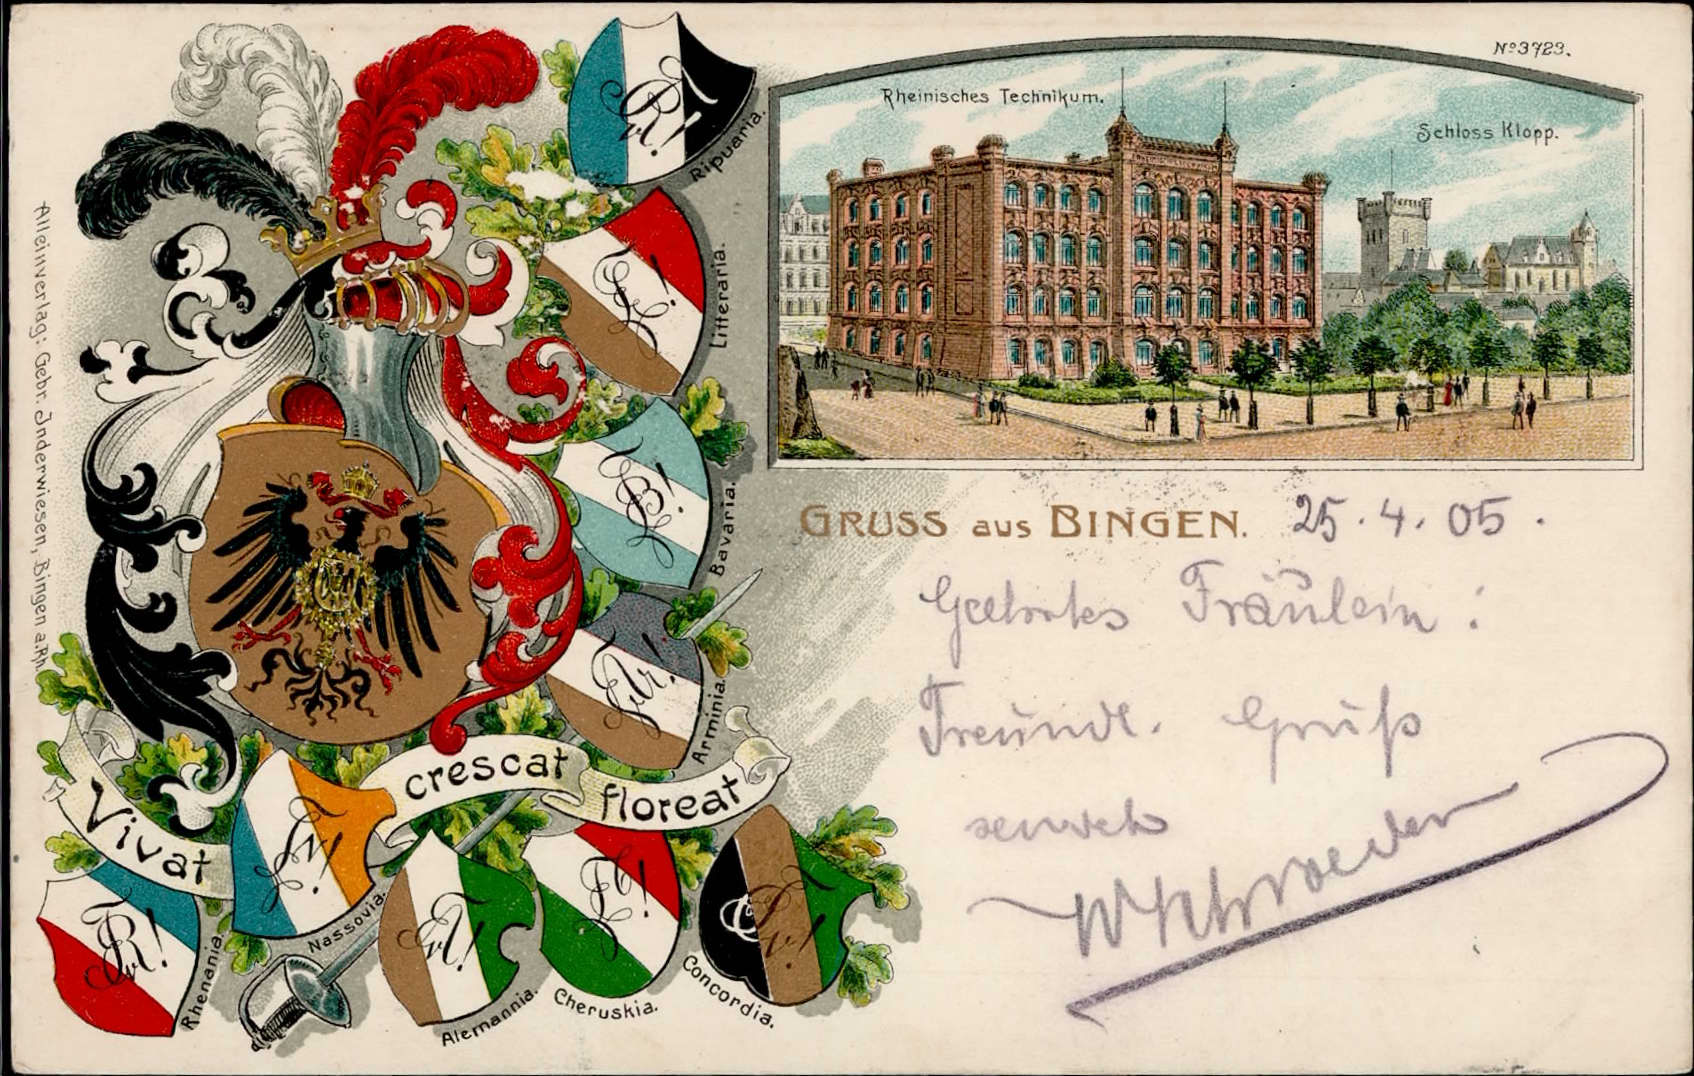 No 3723.
Rheinisches Technikum.
Schloss Klopp.
Ripuaria.
Litteraria.
Bavaria.
Arminia.
Vivat crescat floreat
Rhenania.
Nassovia.
Alemannia.
Cheruskia.
Concordia.
Alleinverlag: Gebr. Inderwiesen, Bingen a.Rh.
GRUSS aus BINGEN. 25.4.05.
Geehrtes Fräulein!
Freundl. Gruß
sendet
WSchroeder